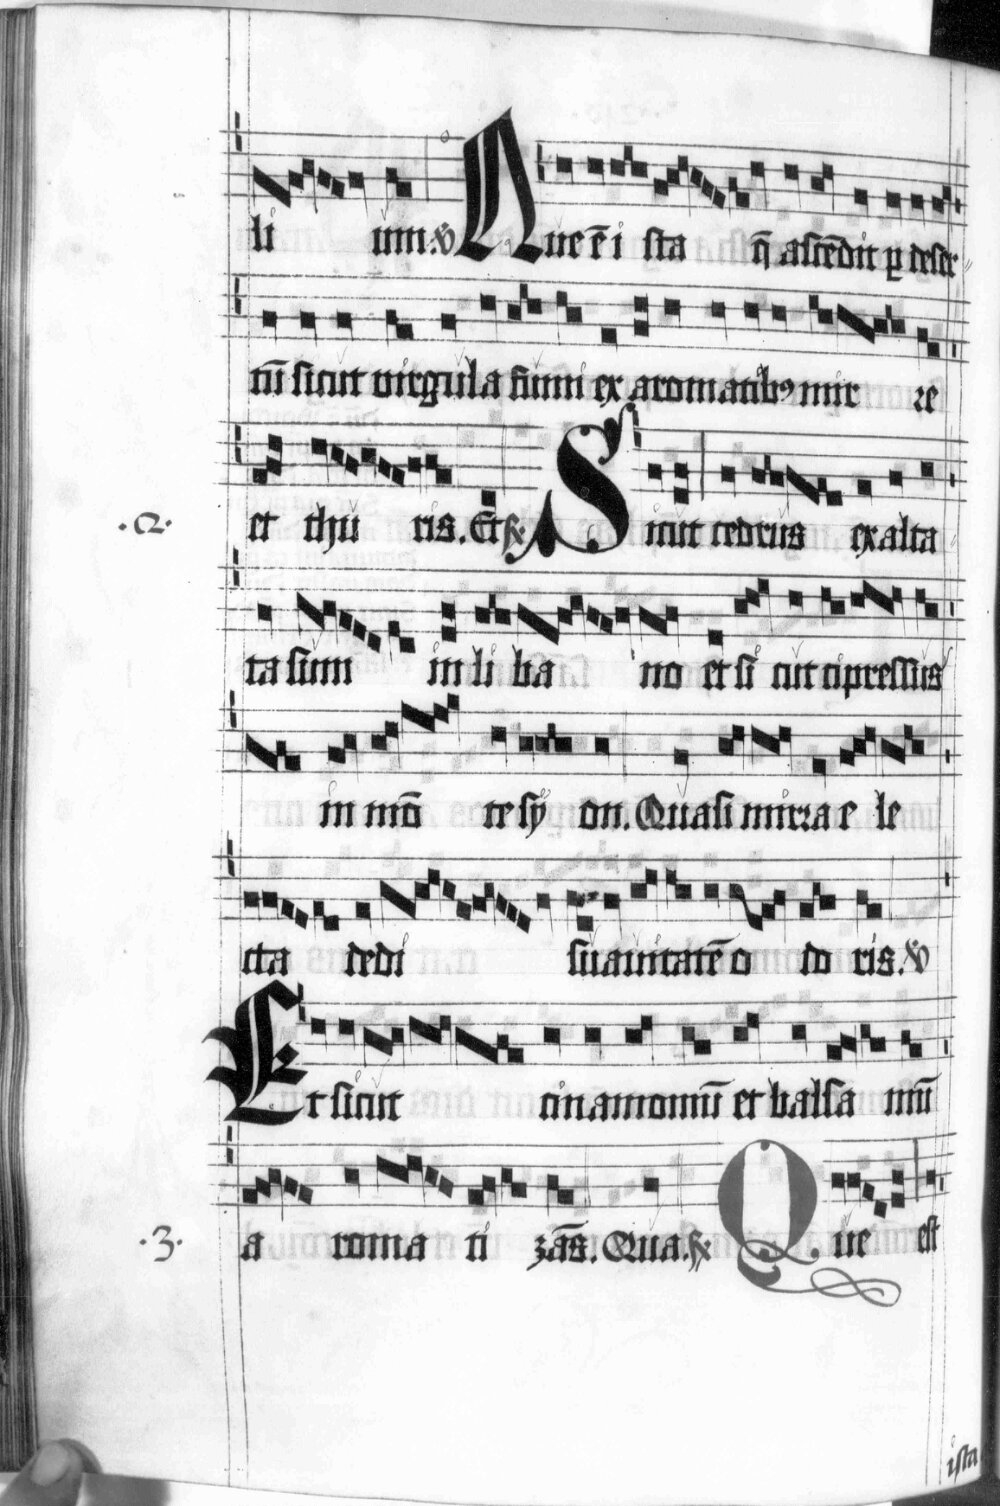 li um. ℣ Que ē i sta q̄ ascēdit ꝑ deser
tū sicut virgula fumi ex aromatibꝰ mir re
.2. et thu ris. Et ℟. Sicut cedrus exalta
ta sum in li ba no et si cut cipressus
in mō te sy on. Quasi mirra e le
cta dedi suauitatē o do ris. ℣
Et sicut cinamomū et balsa mū
.3. a roma ti zās. Qua. ℟. Que est
ista